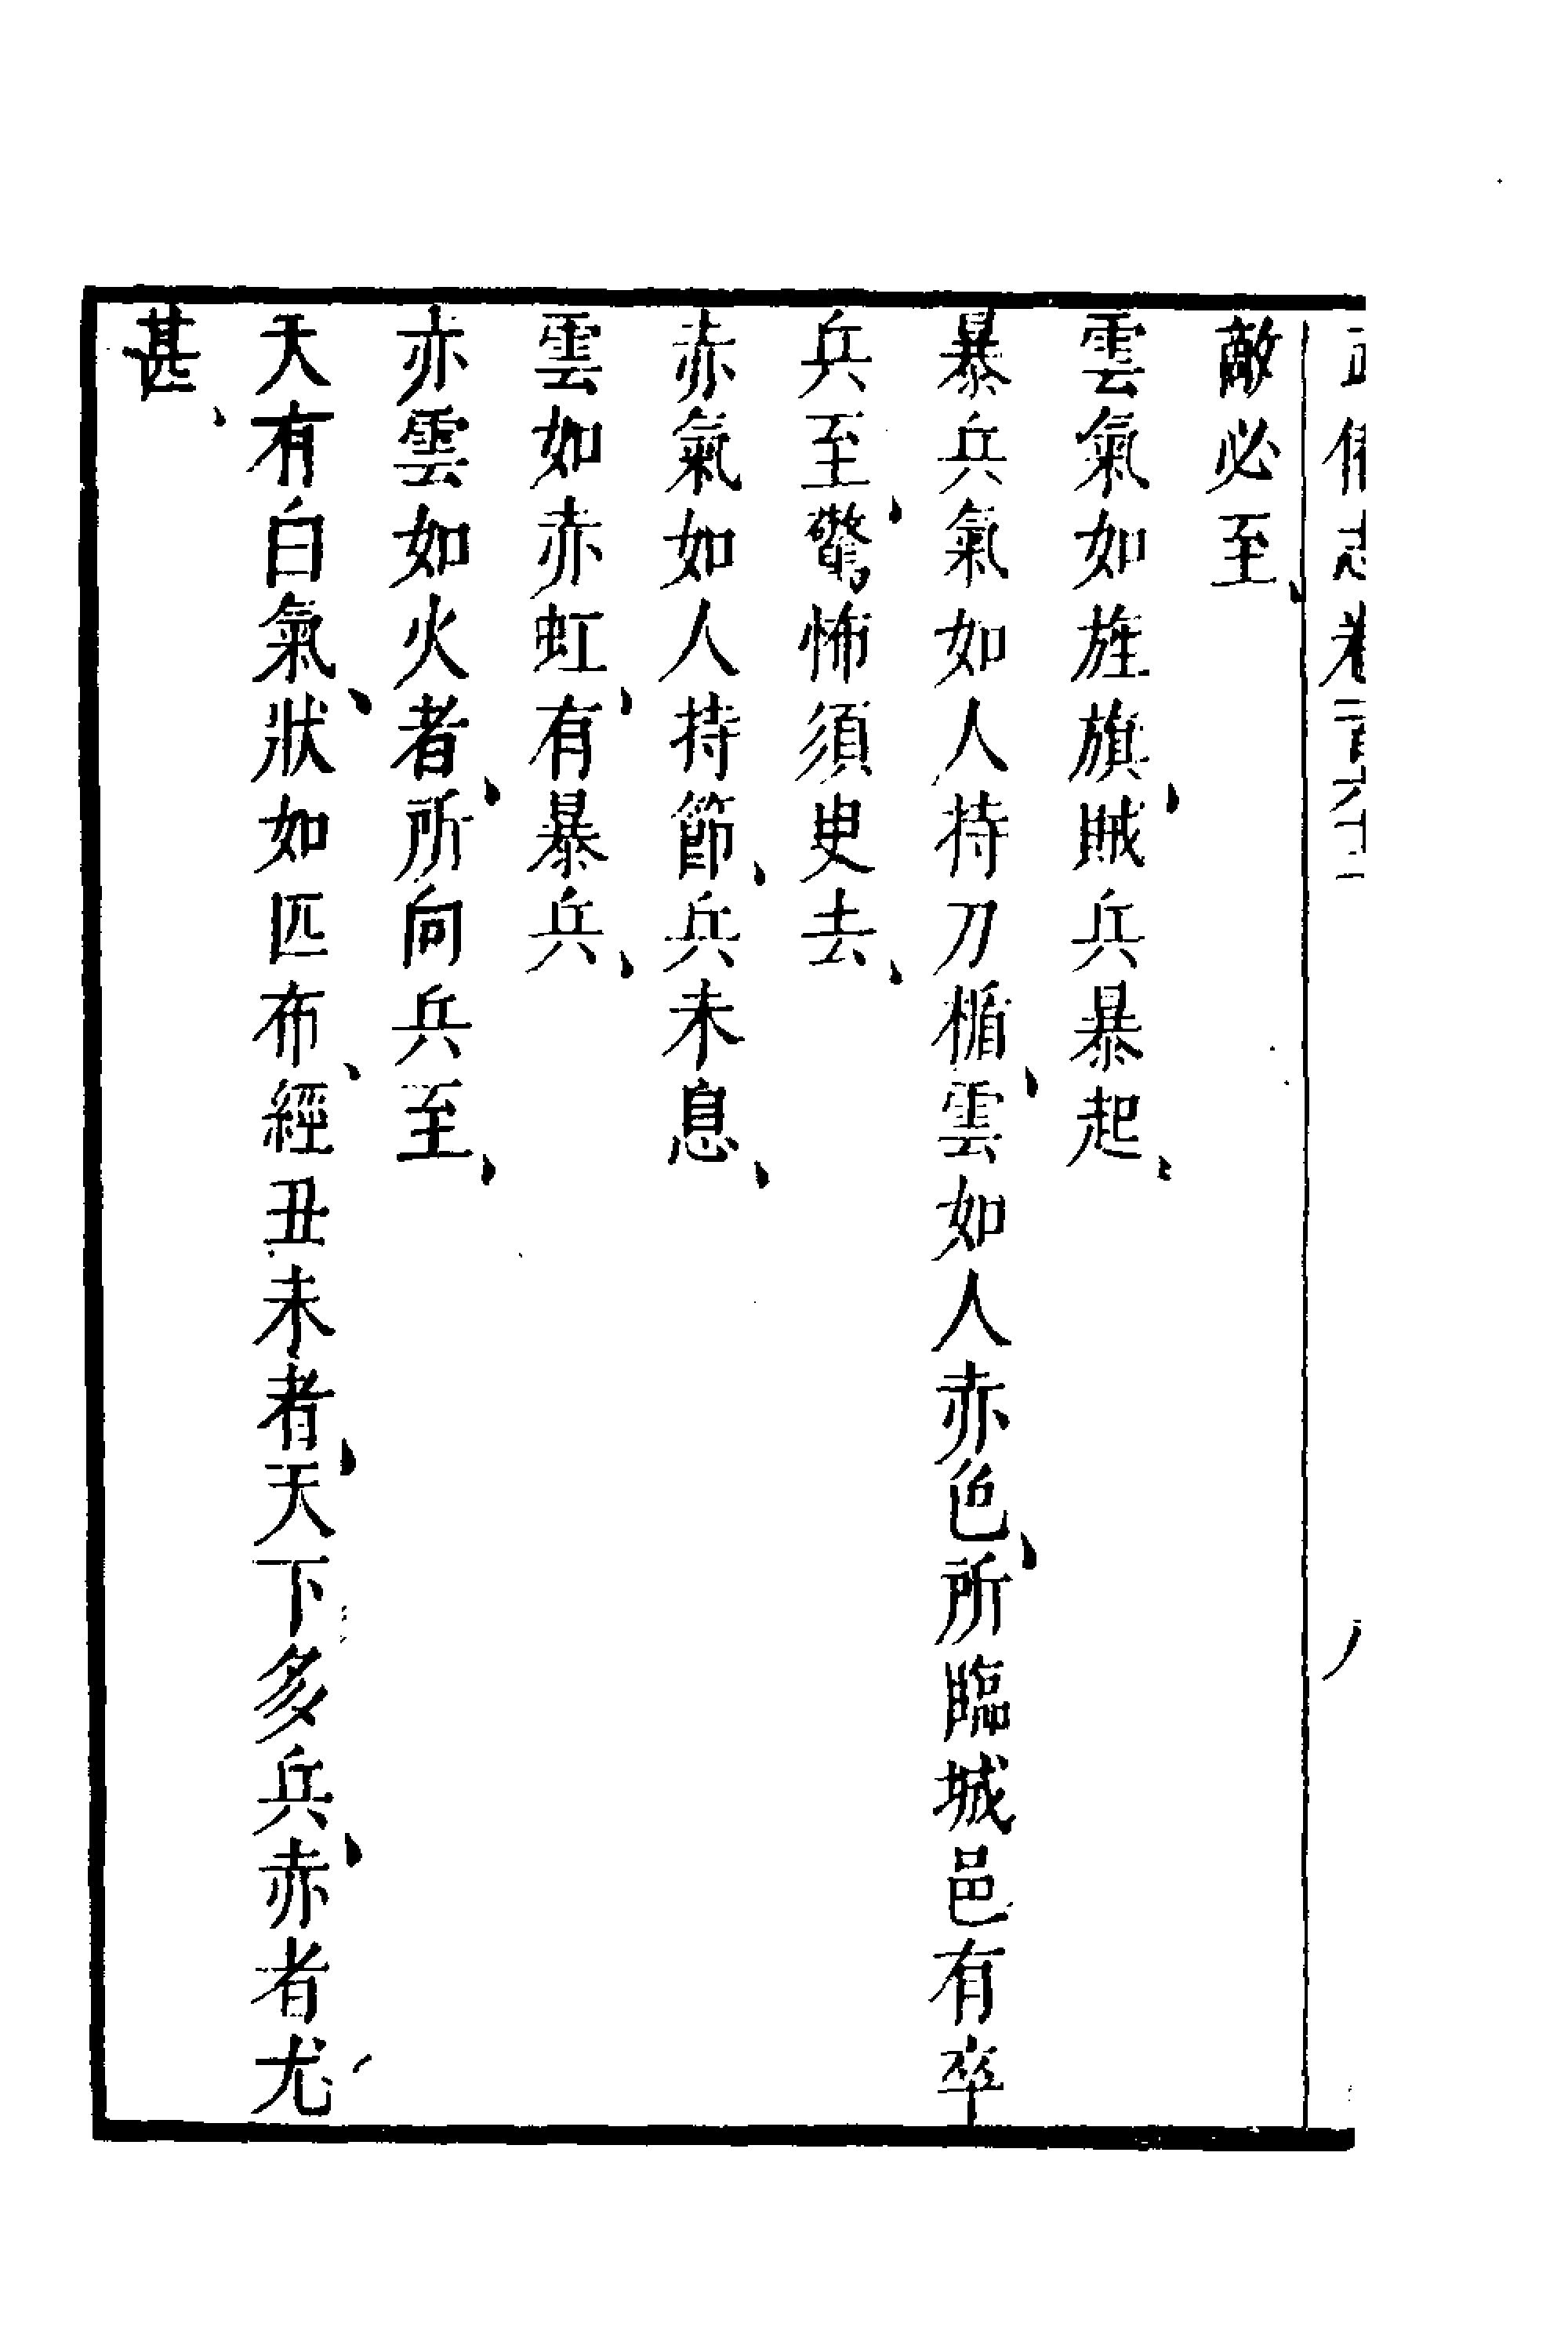 敵必至、
雲氣如旌旗、賊兵暴起、
暴兵氣如人持刀楯、雲如人赤色、所臨城邑有卒
兵至、驚怖須臾去、
赤氣如人持節、兵未息、
雲如赤虹、有暴兵、
赤雲如火者、所向兵至、
天有白氣、狀如匹布、經丑未者、天下多兵、赤者尤
甚、